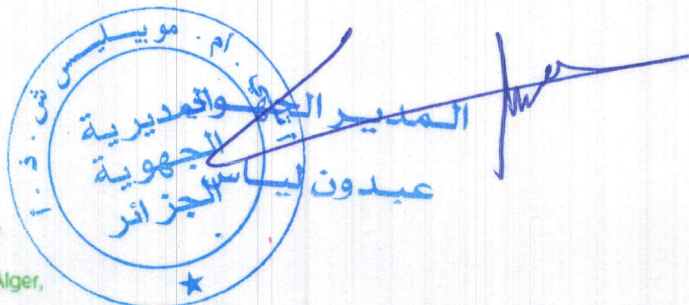 أم. موبيليس ش. ذ. أ
المديرية
الجهوية
الجزائر
المدير الجهوي
عبدون لياس
Alger,